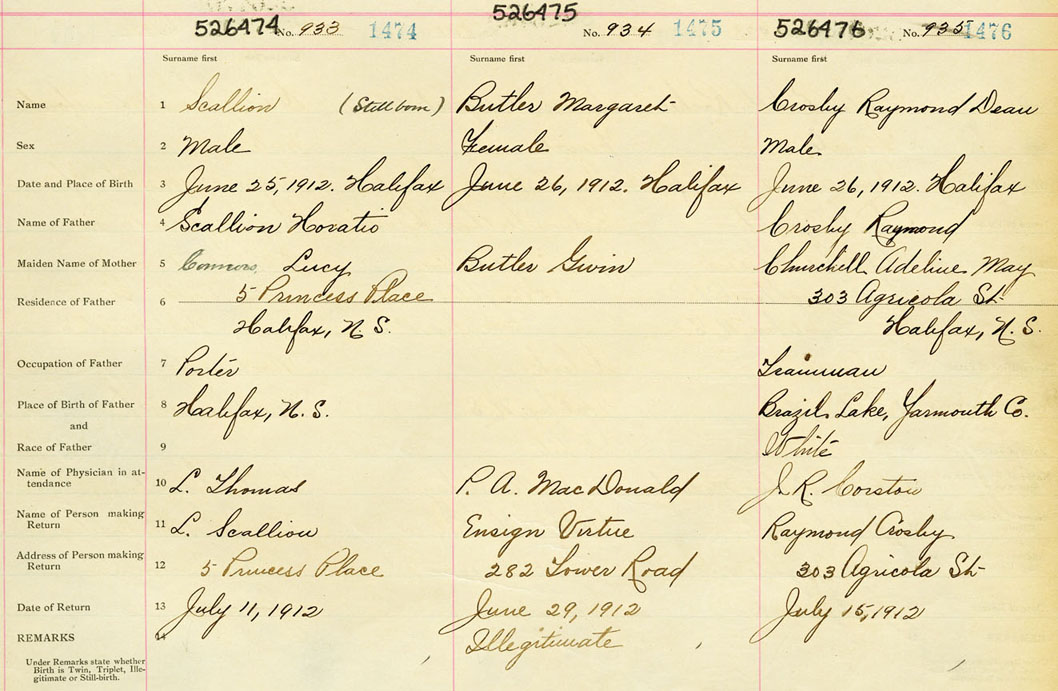 526474 No. 933 1474 526475 No. 934 1475 526476 No. 935 1476
Surname first Surname first Surname first
Name 1 Scallion (Stillborn) Butler Margaret Crosby Raymond Dean
Sex 2 Male Female Male
Date and Place of Birth 3 June 25, 1912. Halifax June 26, 1912. Halifax June 26, 1912. Halifax
Name of Father 4 Scallion Horatio Crosby Raymond
Maiden Name of Mother 5 Connors, Lucy Butler Gwin Churchill Adeline May
Residence of Father 6 5 Princess Place 303 Agricola St.
Halifax, N. S. Halifax, N. S.
Occupation of Father 7 Porter Trainman
Place of Birth of Father 8 Halifax, N. S. Brazil Lake, Yarmouth Co.
and
Race of Father 9 White
Name of Physician in at-
tendance 10 L. Thomas P. A. MacDonald J. R. Corston
Name of Person making
Return 11 L. Scallion Ensign Virtue Raymond Crosby
Address of Person making
Return 12 5 Princess Place 282 Tower Road 303 Agricola St.
Date of Return 13 July 11, 1912 June 29, 1912 July 15, 1912
REMARKS 14 Illegitimate
Under Remarks state whether
Birth is Twin, Triplet, Ille-
gitimate or Still-birth.